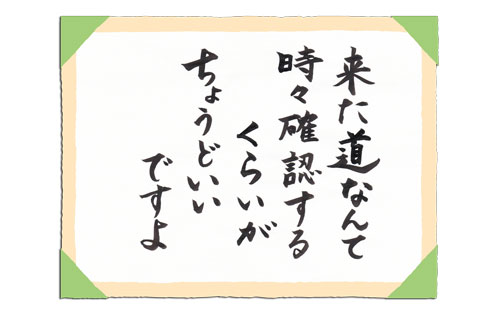 来た道なんて
時々確認する
くらいが
ちょうどいい
ですよ